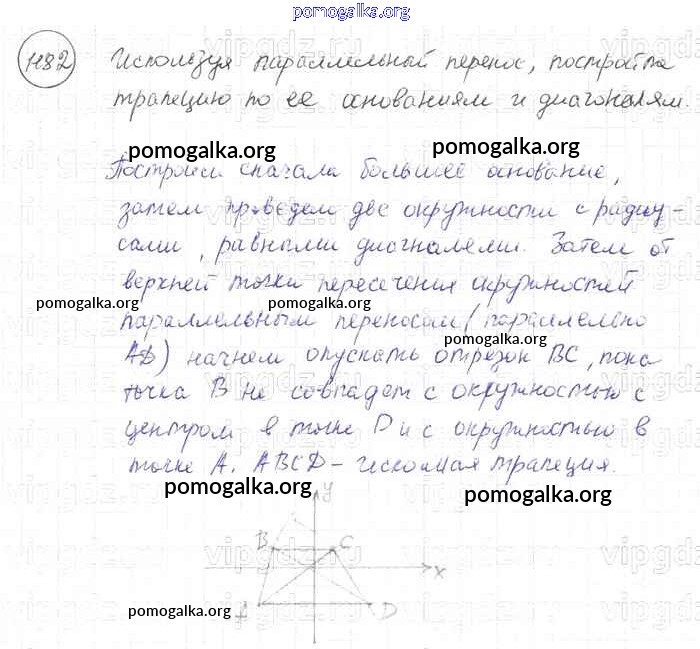 pomogalka.org
1182 Используя параллельный перенос, постройте
трапецию по ее основаниям и диагоналям.
pomogalka.org
pomogalka.org
Построим сначала большее основание,
затем проведем две окружности с радиу-
сами, равными диагоналями. Затем от
верхней точки пересечения окружностей
pomogalka.org
pomogalka.org
параллельным переносом (параллельно
pomogalka.org
AD) начнем опускать отрезок BC, пока
точка B не совпадет с окружностью с
центром в точке D и C окружностью в
точке A. ABCD - искомая трапеция.
pomogalka.org
pomogalka.org
y
B C
x
A D
pomogalka.org